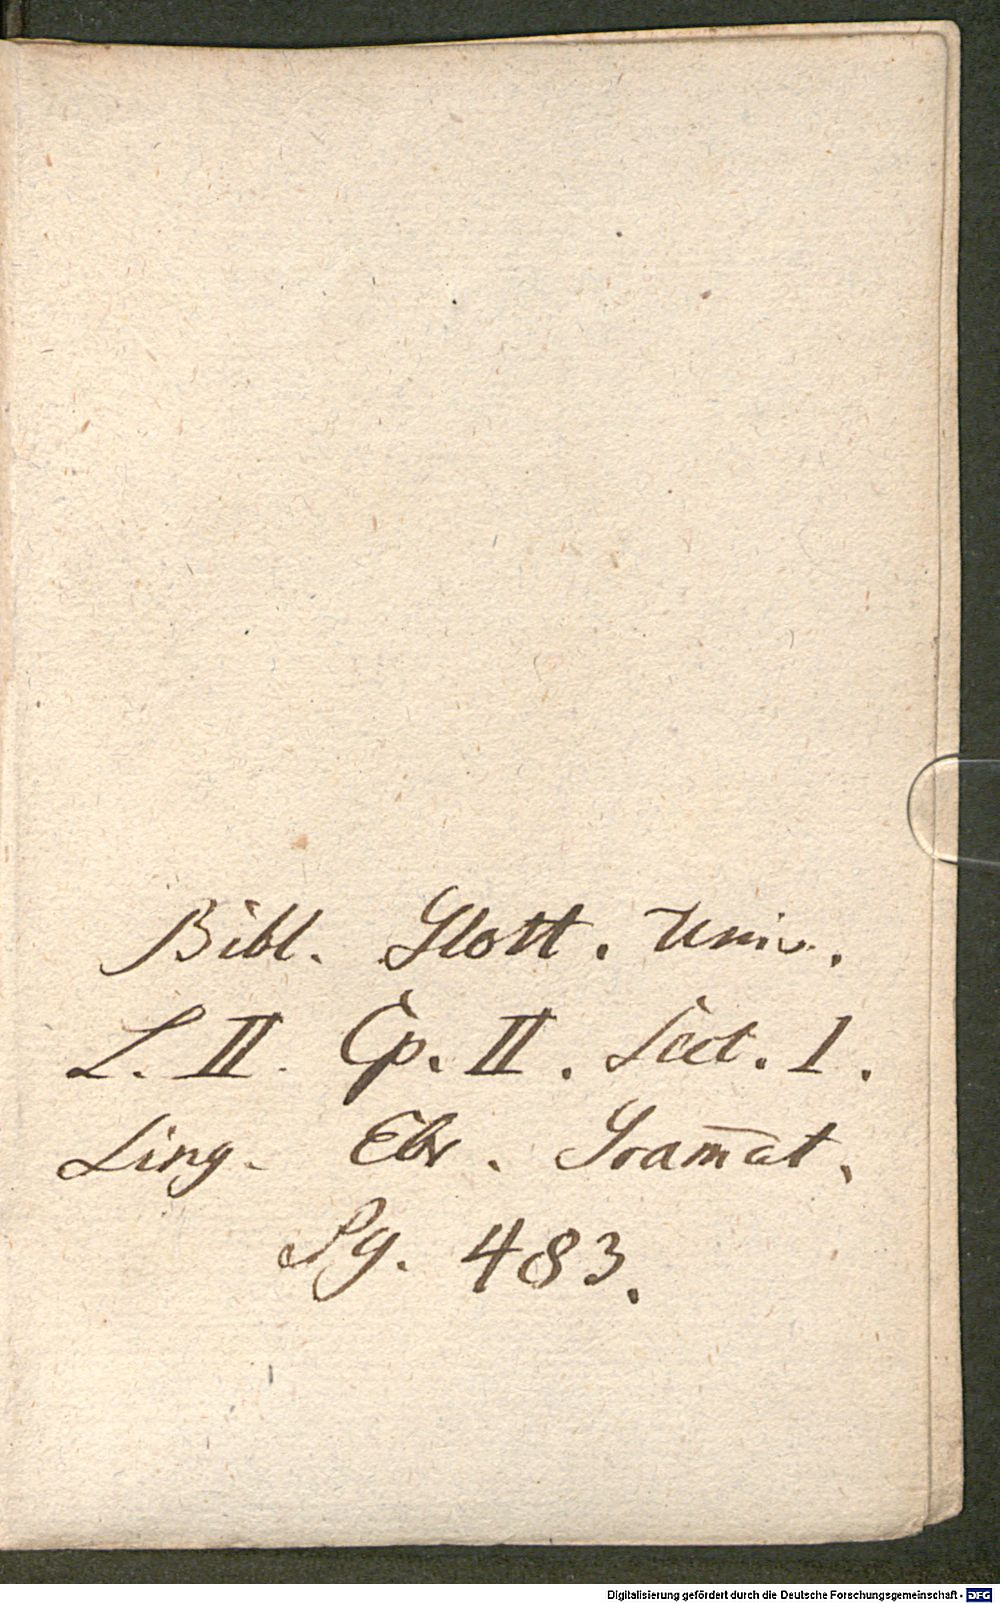 Bibl. Glott. Univ.
L. II. Cp. II. Sect. 1.
Ling. Ebr. Gram̅at.
Pg. 483.
Digitalisierung gefördert durch die Deutsche Forschungsgemeinschaft - DFG